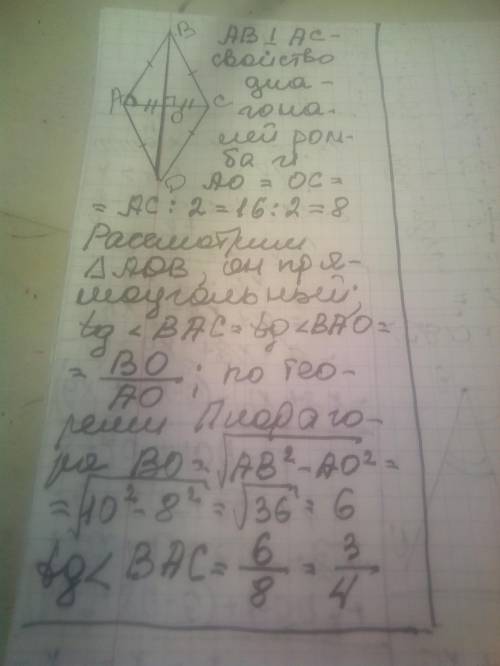 B
A
C
O
D
AB ⊥ AC-
свойство
диа-
гона-
лей ром-
ба и
AO = OC =
= AC : 2 = 16 : 2 = 8
Рассмотрим
△AOB, он пря-
моугольный,
tg < BAC = tg < BAO =
= BO/AO ; по тео-
реме Пифаго-
ра BO = √AB² - AO² =
= √10² - 8² = √36 = 6
tg < BAC = 6/8 = 3/4